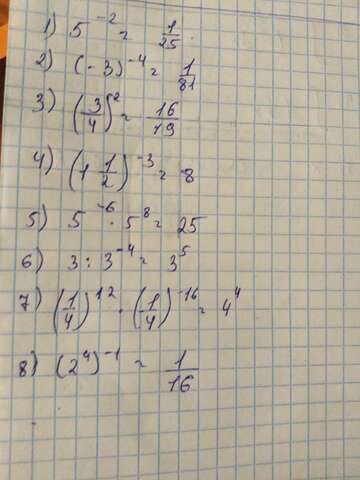 1) 5⁻² = 1/25
2) (-3)⁻⁴ = 1/81
3) (3/4)² = 16/19
4) (1 1/2)⁻³ = 8
5) 5⁻⁶ · 5⁸ = 25
6) 3 : 3⁻⁴ = 3⁵
7) (1/4)¹² · (1/4)⁻¹⁶ = 4⁴
8) (2⁴)⁻¹ = 1/16